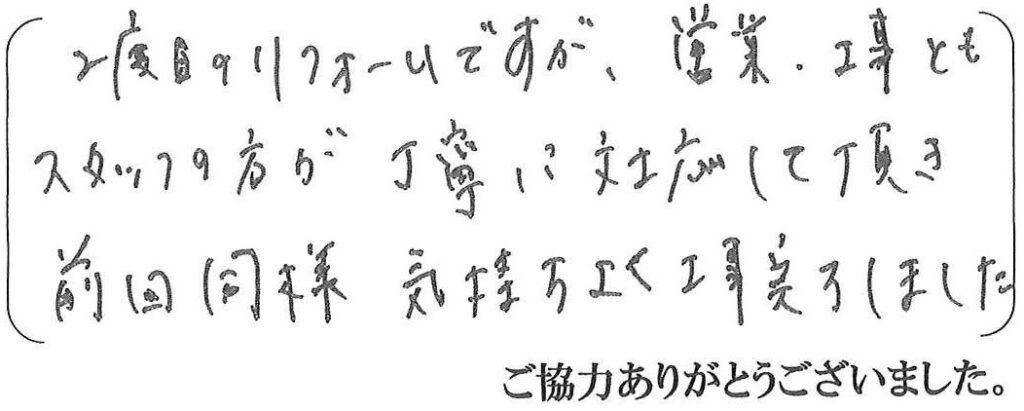 2度目のリフォームですが、営業・工事とも
スタッフの方が丁寧に対応して頂き
前回同様 気持ちよく工事完了しました
ご協力ありがとうございました。